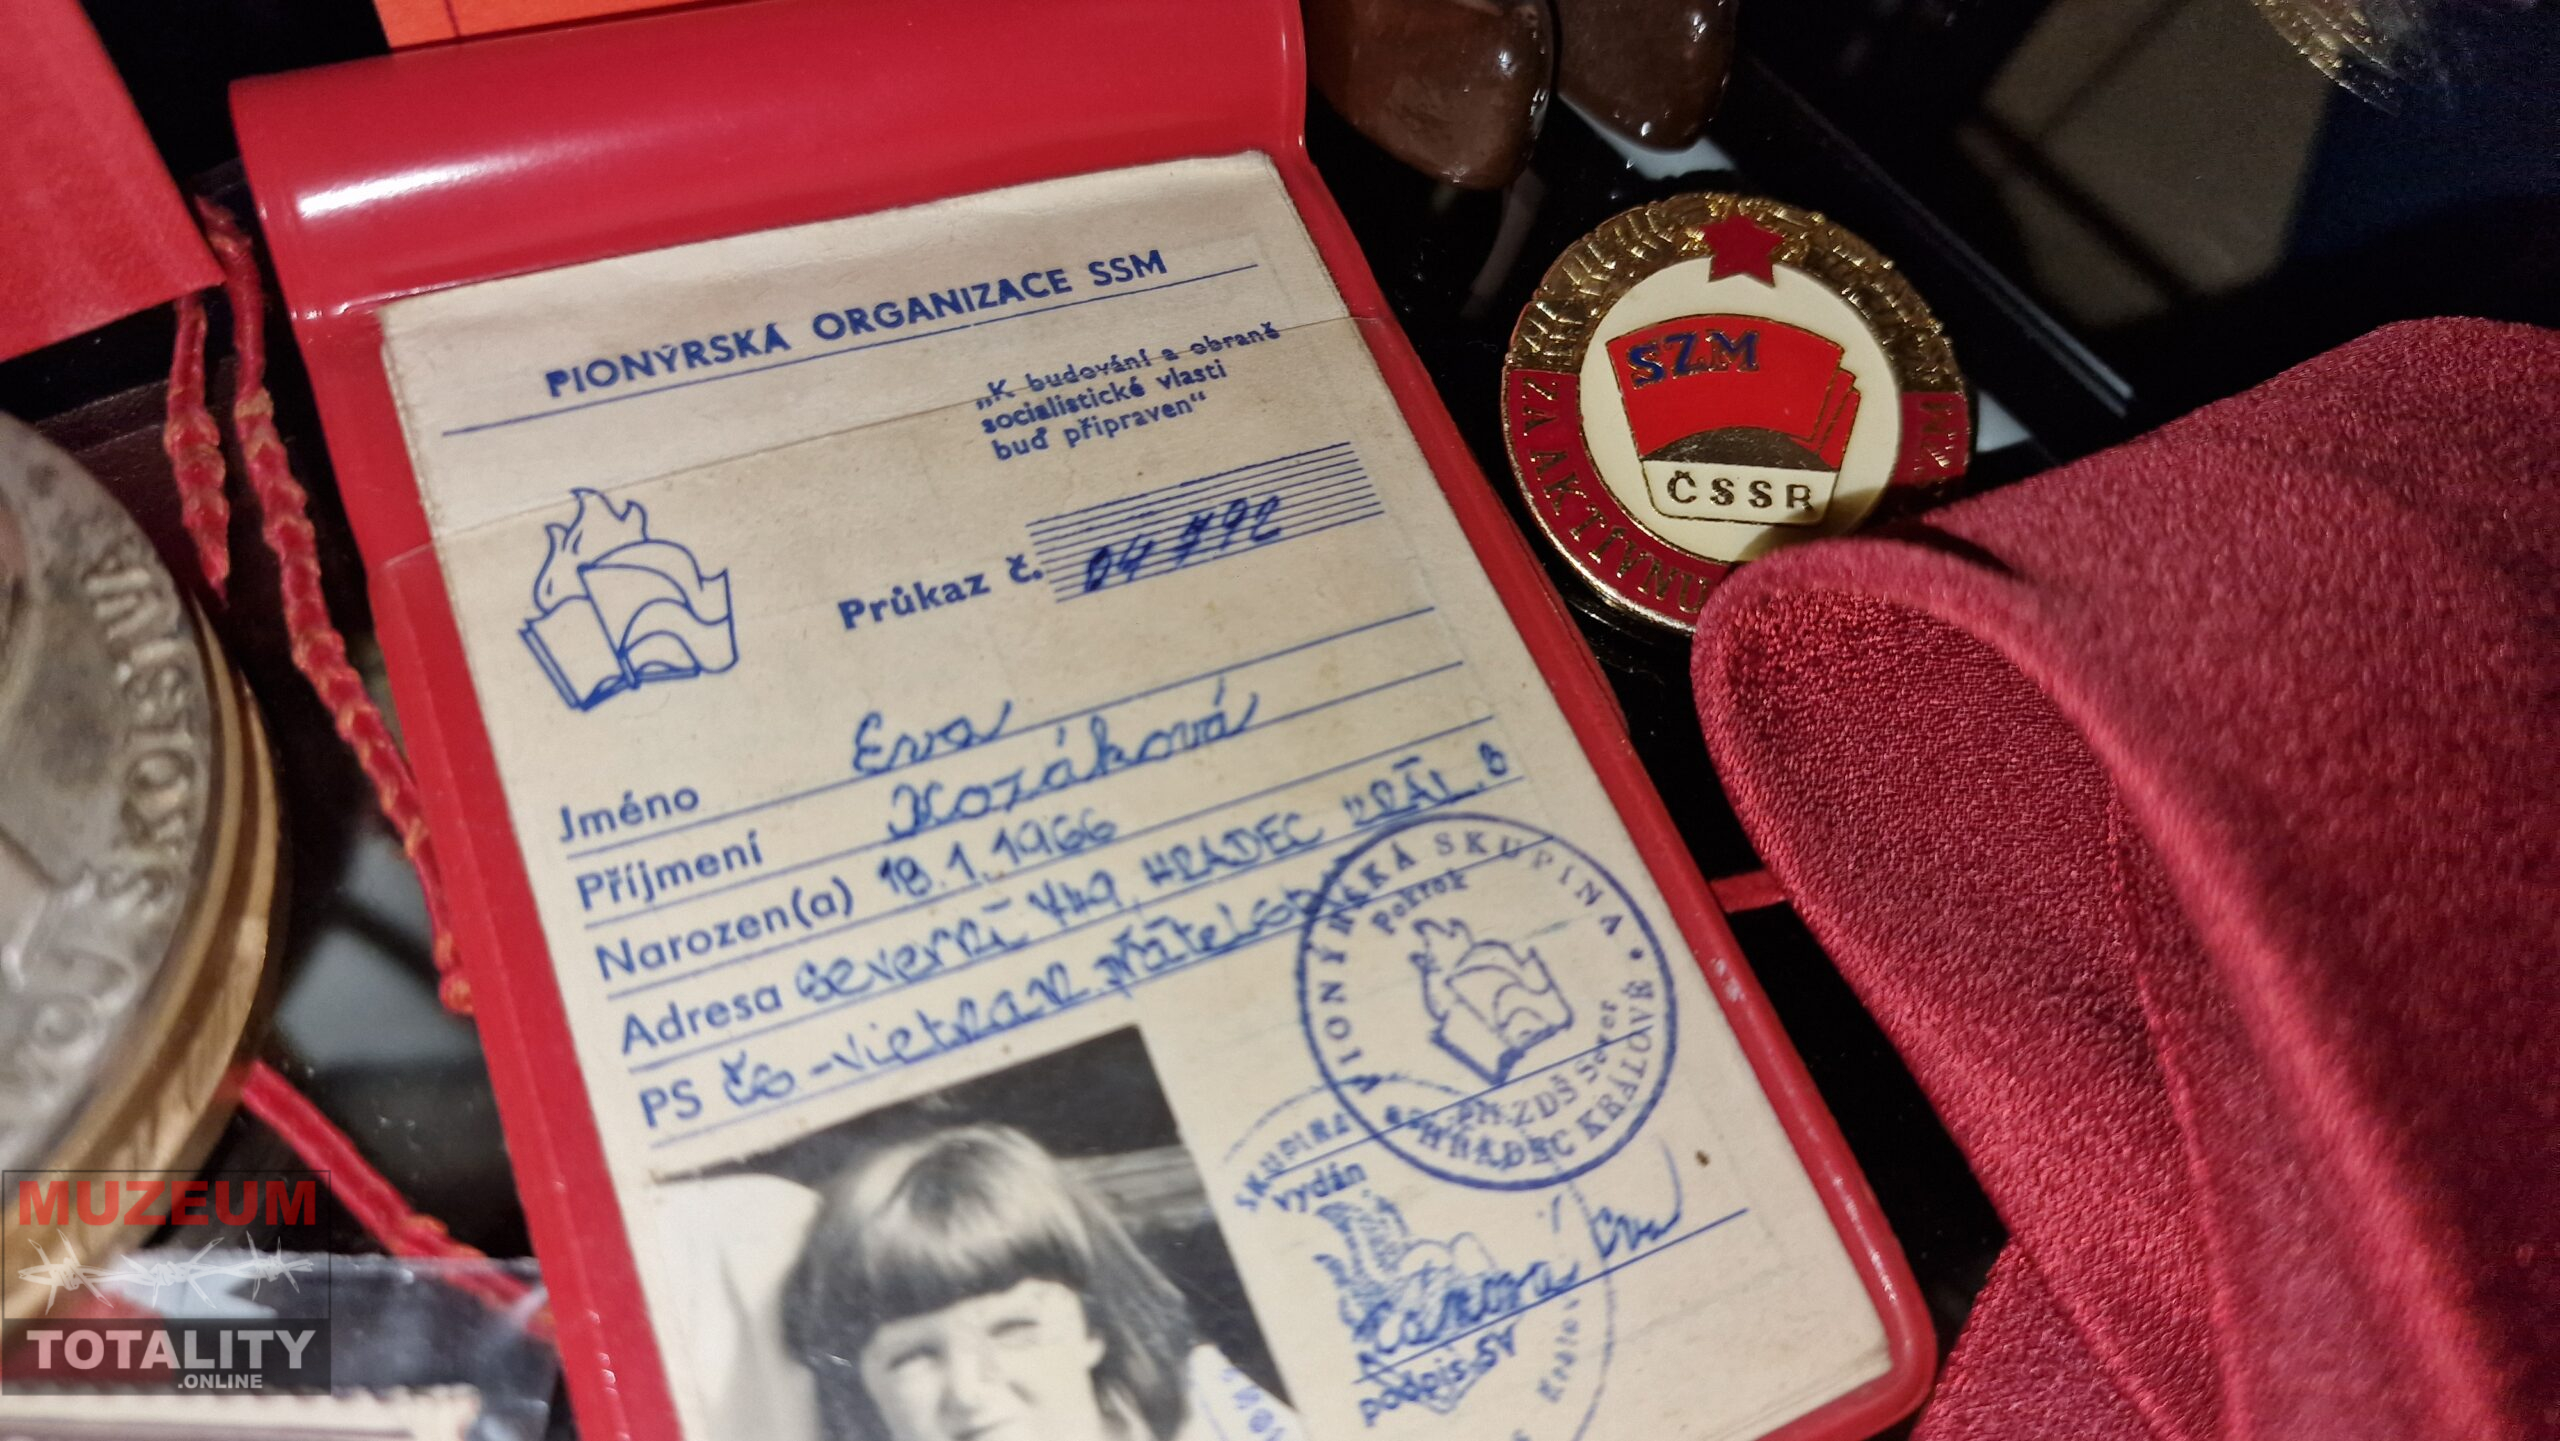 PIONÝRSKÁ ORGANIZACE SSM
„K budování a obraně
socialistické vlasti
buď připraven“
Průkaz č. 04 792
Jméno Eva
Příjmení Kozáková
Narozen(a) 18.1.1966
Adresa Severní 749, HRADEC KRÁL. 8
PS čs-vietnam přátelství
PIONÝRSKÁ SKUPINA
Pokrok
ZDŠ Sever
HRADEC KRÁLOVÉ
SKUPINA
vydán
podpis SV
SZM
ČSSR
ZA AKTÍVNU
MUZEUM
TOTALITY
.ONLINE